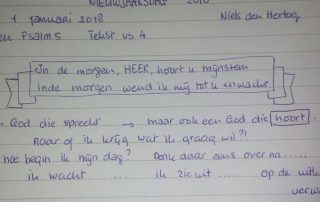 NIEUWJAARSDAG 2018
1 januari 2018 Niels den Hertog
Psalm 5 Tekst vs 4
In de morgen, HEER, hoort u mijn stem
In de morgen wend ik mij tot u en wacht
God die spreekt → maar ook een God die hoort.
maar of ik krijg wat ik graag wil?!
hoe begin ik mijn dag? Denk daar eens over na .....
ik wacht ..... ik zie uit .... op de uitk
verw